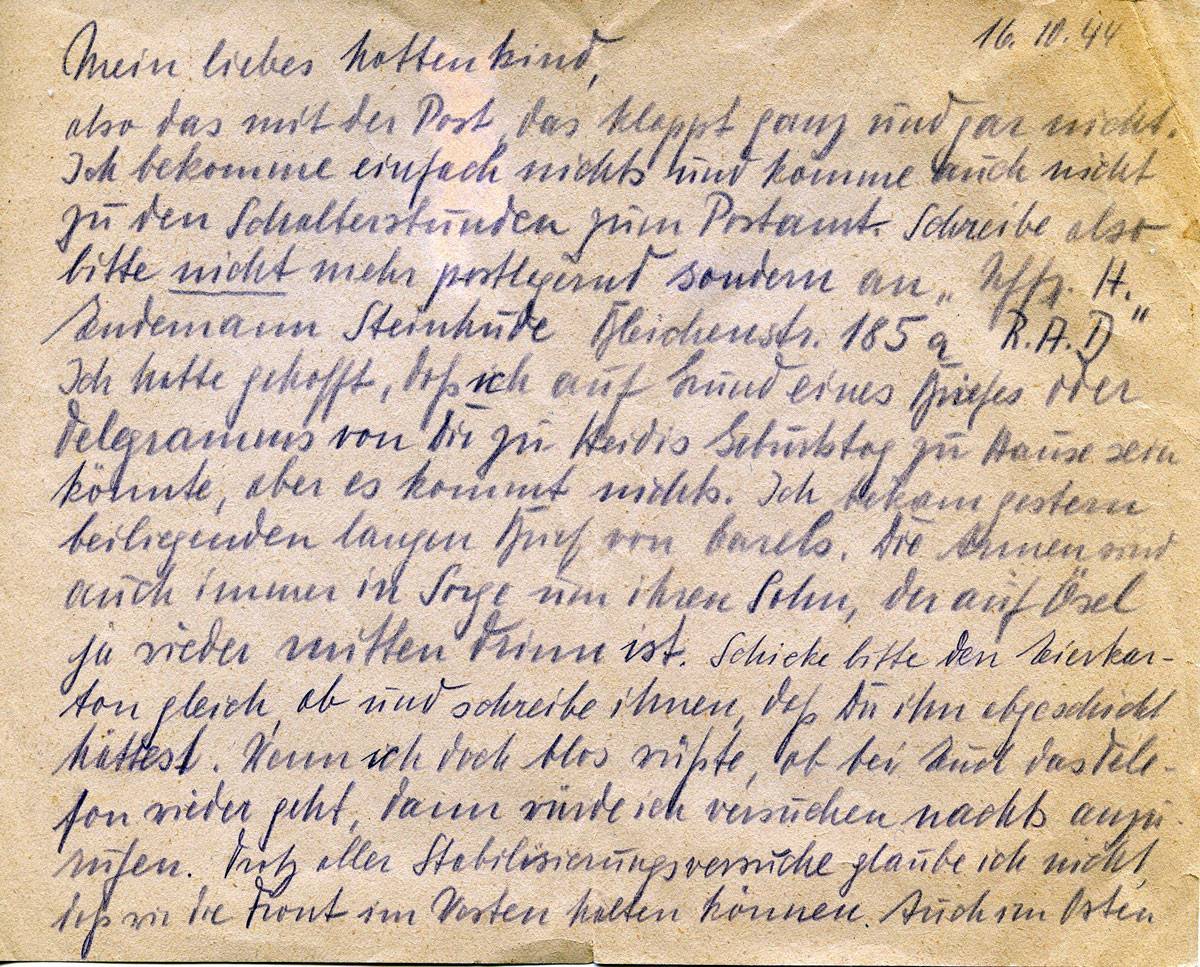 16. 10. 44
Mein liebes Hottenkind,
also das mit der Post, das klappt ganz und gar nicht.
Ich bekomme einfach nichts und komme auch nicht
zu den Schalterstunden zum Postamt. Schreibe also
bitte nicht mehr postlagernd sondern an „Uffz. H.
Endemann Steinhude Bleichenstr. 185 a R.A.D"
Ich hatte gehofft, daß ich auf Grund eines Briefes oder
Telegramms von Dir zu Heidis Geburtstag zu Hause sein
könnte, aber es kommt nichts. Ich bekam gestern
beiliegenden langen Brief von Carels. Die Armen sind
auch immer in Sorge um ihren Sohn, der auf Ösel
ja wieder mitten drinn ist. Schicke bitte den Eierkar-
ton gleich ab und schreibe ihnen, daß Du ihn abgeschickt
hättest. Wenn ich doch blos wüßte, ob bei Euch das Tele-
fon wieder geht, dann würde ich versuchen nachts anzu-
rufen. Trotz aller Stabilisierungsversuche glaube ich nicht,
daß wir die Front im Westen halten können. Auch im Osten